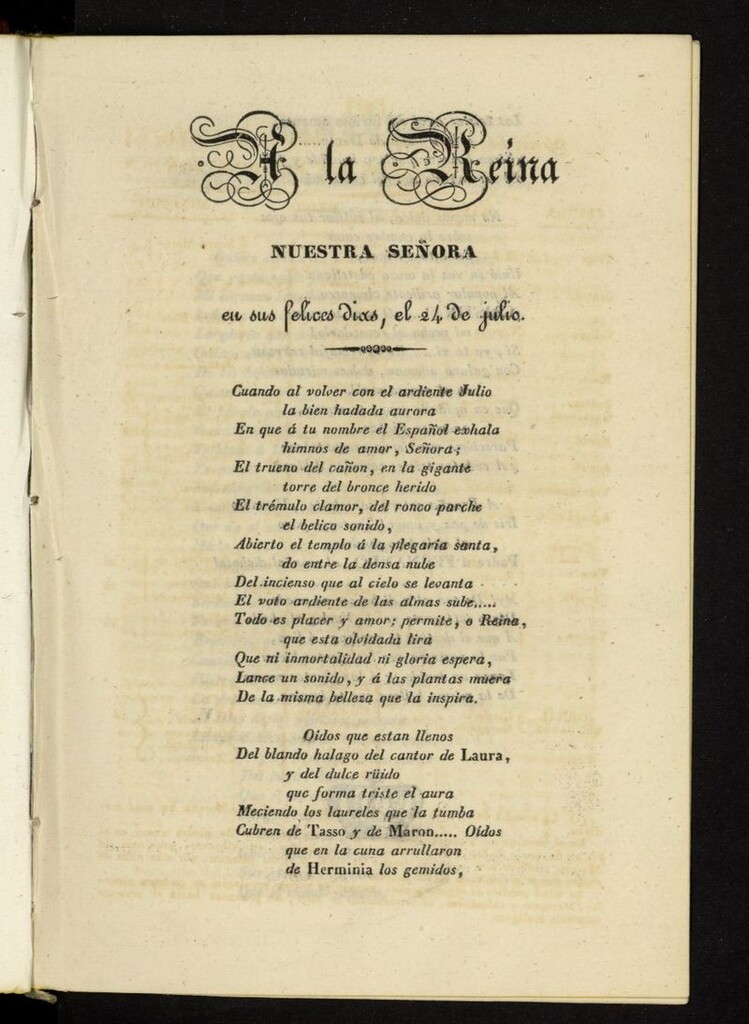 A la Reina
NUESTRA SEÑORA
en sus felices dias, el 24 de julio.
Cuando al volver con el ardiente Julio
la bien hadada aurora
En que á tu nombre el Español exhala
himnos de amor, Señora;
El trueno del cañon, en la gigante
torre del bronce herido
El trémulo clamor, del ronco parche
el belico sonido,
Abierto el templo á la plegaria santa,
do entre la densa nube
Del incienso que al cielo se levanta
El voto ardiente de las almas sube.....
Todo es placer y amor; permite, o Reina,
que esta olvidada lira
Que ni inmortalidad ni gloria espera,
Lance un sonido, y á las plantas muera
De la misma belleza que la inspira.
Oidos que estan llenos
Del blando halago del cantor de Laura,
y del dulce rüido
que forma triste el aura
Meciendo los laureles que la tumba
Cubren de Tasso y de Maron..... Oídos
que en la cuna arrullaron
de Herminia los gemidos,